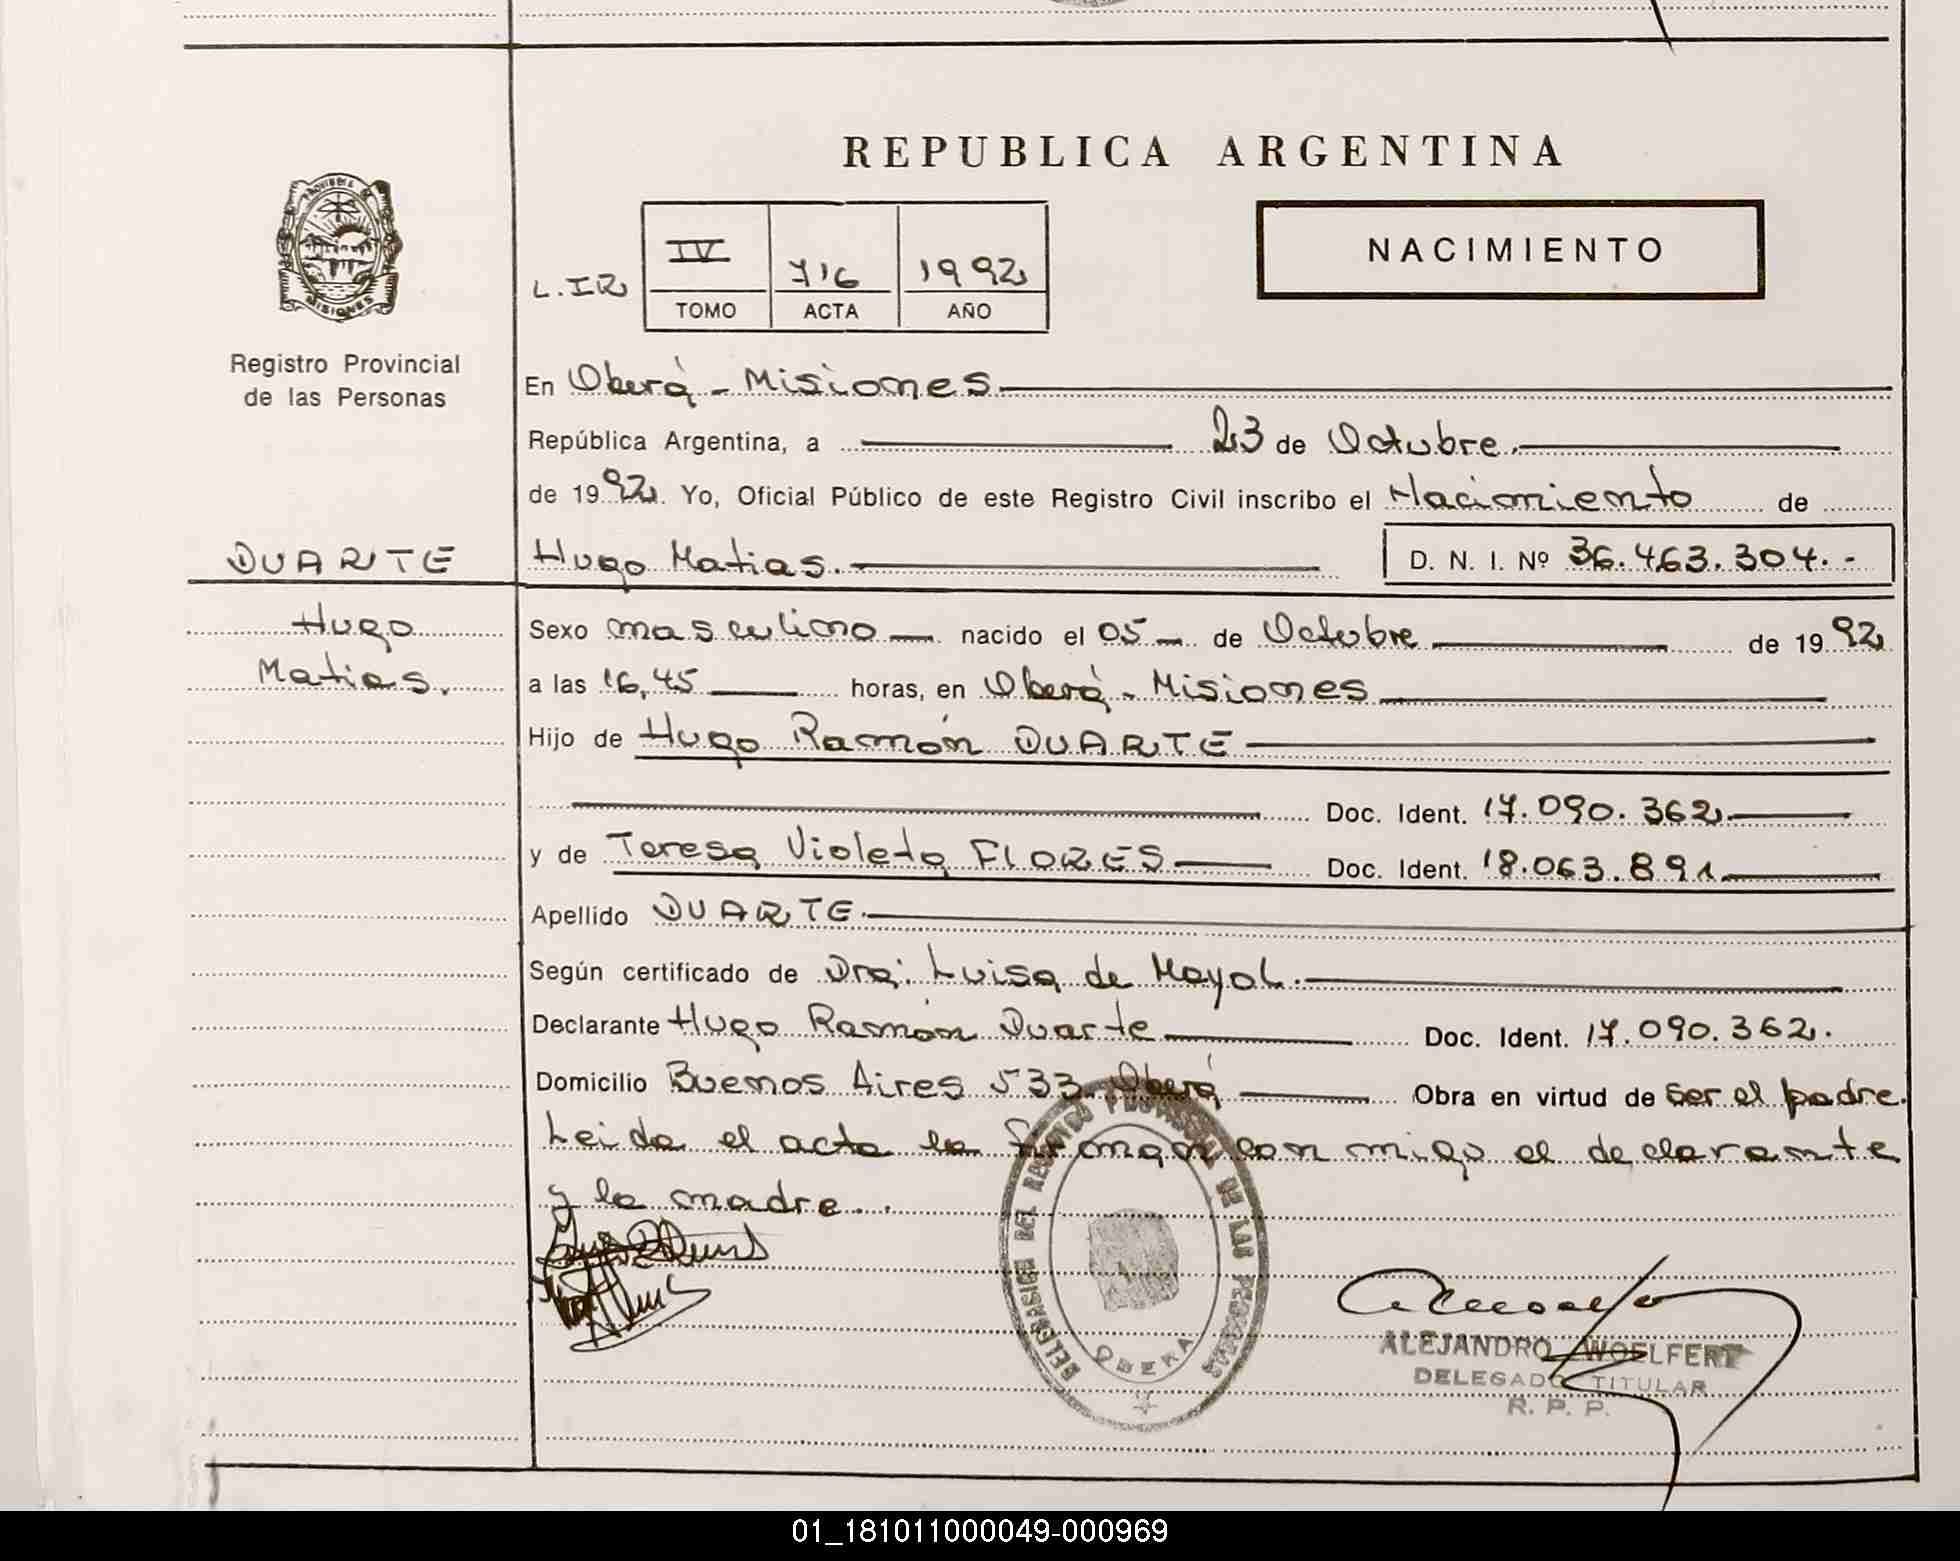 REPUBLICA ARGENTINA
PROVINCIA DE MISIONES
L.IR IV 716 1992
TOMO ACTA AÑO
NACIMIENTO
Registro Provincial
de las Personas
En Oberá - Misiones
República Argentina, a 23 de Octubre.
de 1992. Yo, Oficial Público de este Registro Civil inscribo el Nacimiento de
DUARTE
Hugo Matias. D. N. I. Nº 36.463.304.-
Hugo
Matias.
Sexo masculino nacido el 05 de Octubre de 1992
a las 16,45 horas, en Oberá - Misiones
Hijo de Hugo Ramón DUARTE
Doc. Ident. 17.090.362
y de Teresa Violeta FLORES Doc. Ident. 18.063.891
Apellido DUARTE.
Según certificado de Dra: Luisa de Mayol.
Declarante Hugo Ramón Duarte Doc. Ident. 17.090.362.
Domicilio Buenos Aires 533 Oberá Obra en virtud de ser el padre.
Leida el acta la firman con migo el declarante
y la madre..
DELEGACION DEL REGISTRO PROVINCIAL DE LAS PERSONAS
OBERA
ALEJANDRO WOELFERT
DELEGADO TITULAR
R. P. P.
01_181011000049-000969